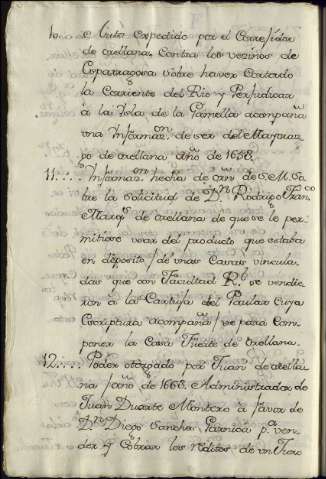 e Auto expedido por el Correjidor
de orellana contra los vezinos de
Esparragosa sobre haver Cortado
la Corriente del Rio y Perjudicar
á la Ysla de la Gamella acompaña
una Informaon. de ser del Mayoraz
go de orellana año de 1658.
11.... Informaon. hecha de orn. de S. M. So
bre la solicitud de Dn. Rodrigo Franco
Marqs. de orellana de que se le per
mitiese usar del producto que estaba
en depósito/de unas Casas vincula
das que con Facultad Rl. se vendie
ron á la Cartuja del Paular Cuya
Escriptura acompaña/ para Com
poner la Casa Fuerte de Orellana.
12.... Poder otorgado por Juan de orella
na/año de 1666. Administrador de
Juan Duarte Montero á favor de
Dn. Diego Sanchez pa. ven
der y Cobrar los réditos de un